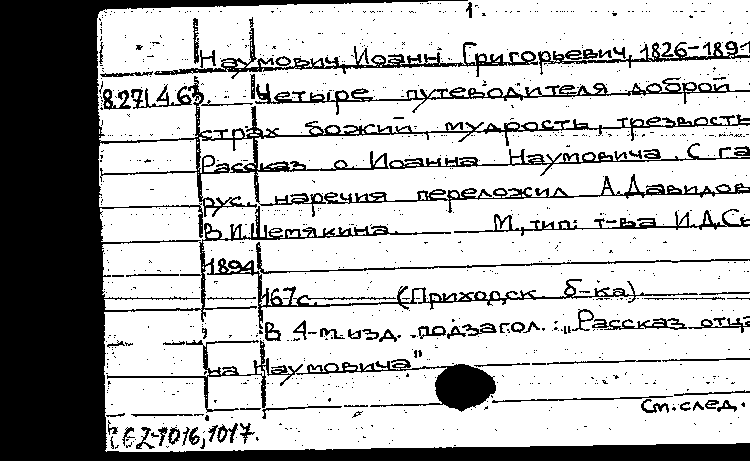 1.
Наумович, Иоанн Григорьевич, 1826-1891
8.27/.4.63. Четыре путеводителя доброй
страх божий, мудрость, трезвость
Рассказ о. Иоанна Наумовича. С га
рус. наречия переложил А. Давидов
В.И. Шемякина. М., тип. т-ва И.Д. Сы
1894
167с. (Приходск. б-ка).
В 4-м изд. подзагол.: „Рассказ отца
на Наумовича"
См. след.
62-1016, 1017.